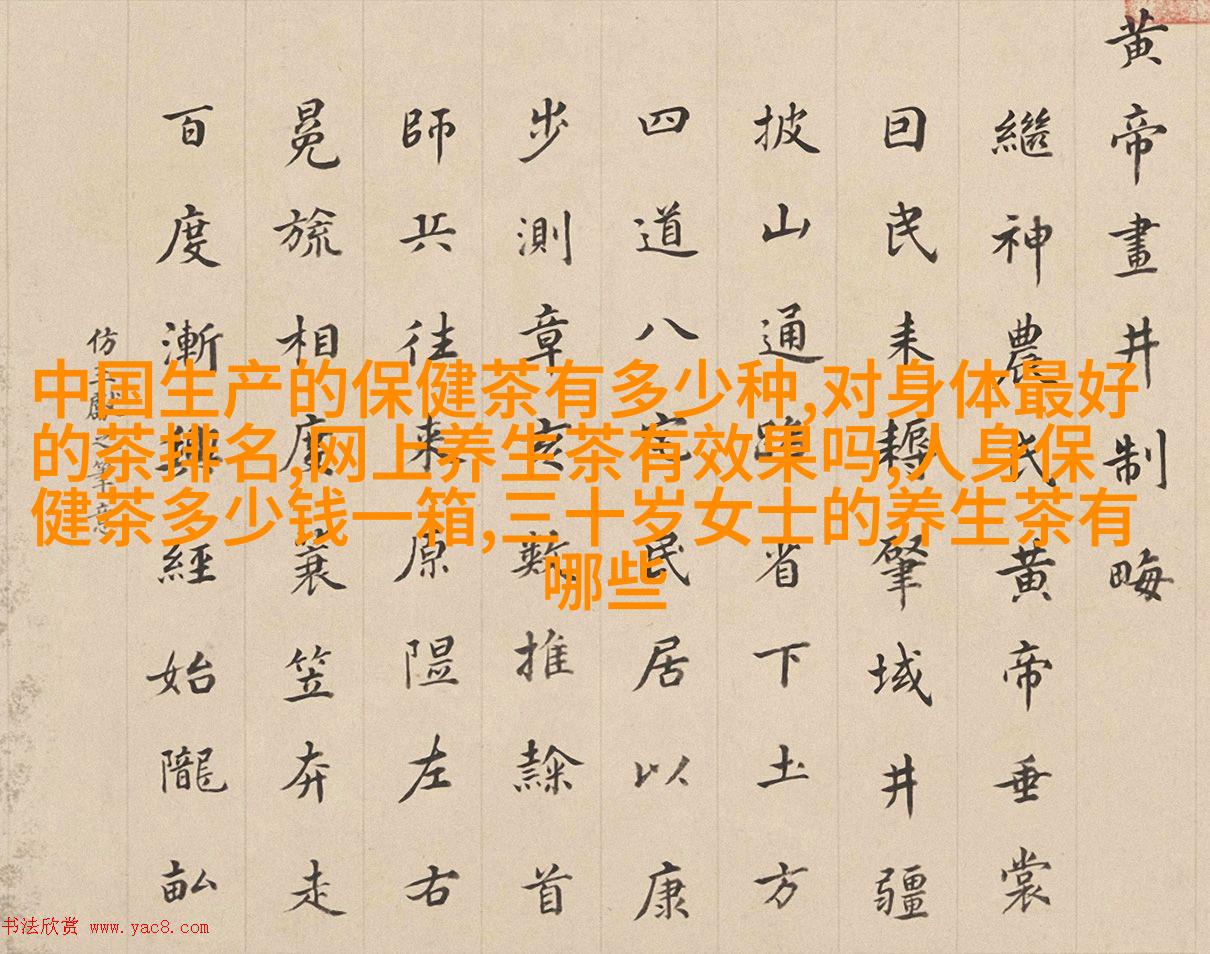 黄帝畫井制畮
繼神農氏黄帝垂裳
囙民耒耨肇域井疆
披山通省下土方
四道八宅民居以康
步測章亥數推隸首
師兵往來原隰左右
冕旒相度蓑笠奔走
百度漸經始隴畝
仿王獻之筆意
中国生产的保健茶有多少种,对身体最好
的茶排名,网上养生茶有效果吗,人身保
健茶多少钱一箱,三十岁女士的养生茶有
哪些
书法欣赏 www.yac8.com